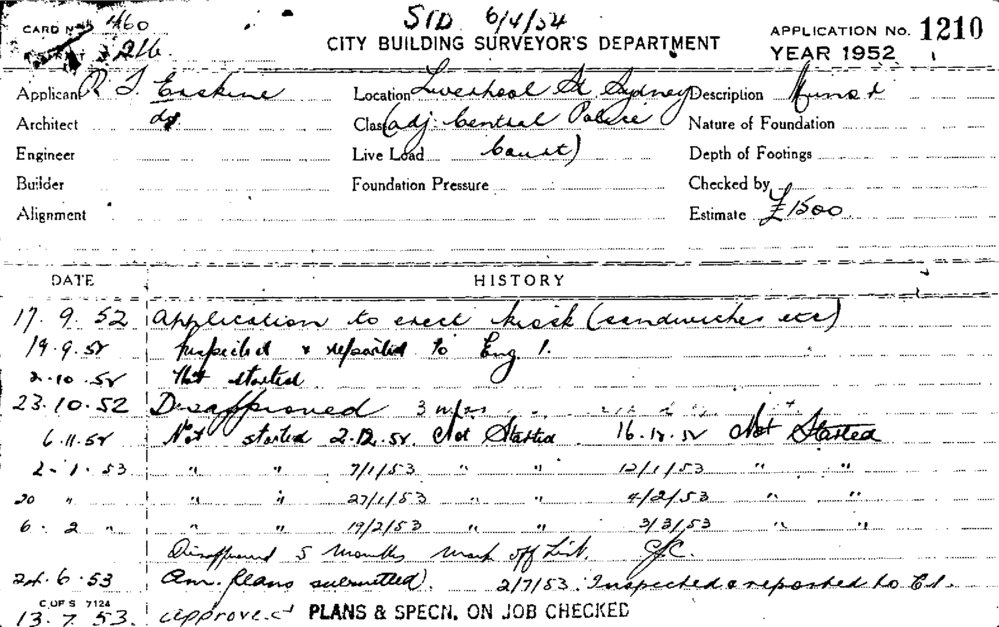 CARD No 460 STD 6/4/54 APPLICATION No. 1210
216 CITY BUILDING SURVEYOR'S DEPARTMENT YEAR 1952
Applicant R. J. Erskine Location Liverpool St Sydney Description
Architect do Class (adj. Central Police Nature of Foundation
Engineer Live Load Court) Depth of Footings
Builder Foundation Pressure Checked by
Alignment Estimate £1500
DATE HISTORY
17.9.52 Application to erect kiosk (sandwiches etc)
19.9.52 Inspected & reported to Eng 1.
2.10.52 Not started
23.10.52 Disapproved 3
6.11.52 Not started 2.12.52. Not Started. 16.12.52 Not Started
2.1.53 " " 7/1/53 " " 12/1/53 " "
20 " " " 27/1/53 " " 4/2/53 " "
6. 2 " " " 19/2/53 " " 3/3/53 " "
Disapproved 5 months mark off List.
24.6.53 Am. plans submitted. 2/7/53. Inspected & reported to E1.
C OF S 7124
13.7.53. Approved PLANS & SPECN. ON JOB CHECKED